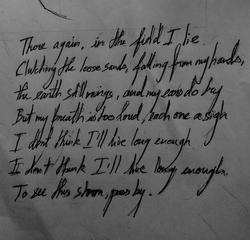 There again, in the field I lie
Clutching the loose sands, falling from my hands,
the earth still rings, and my ears do
But my breath is too loud, each one a sigh
I don't think I'll live long enough
I don't think I'll live long enough.
To see this storm, pass by.